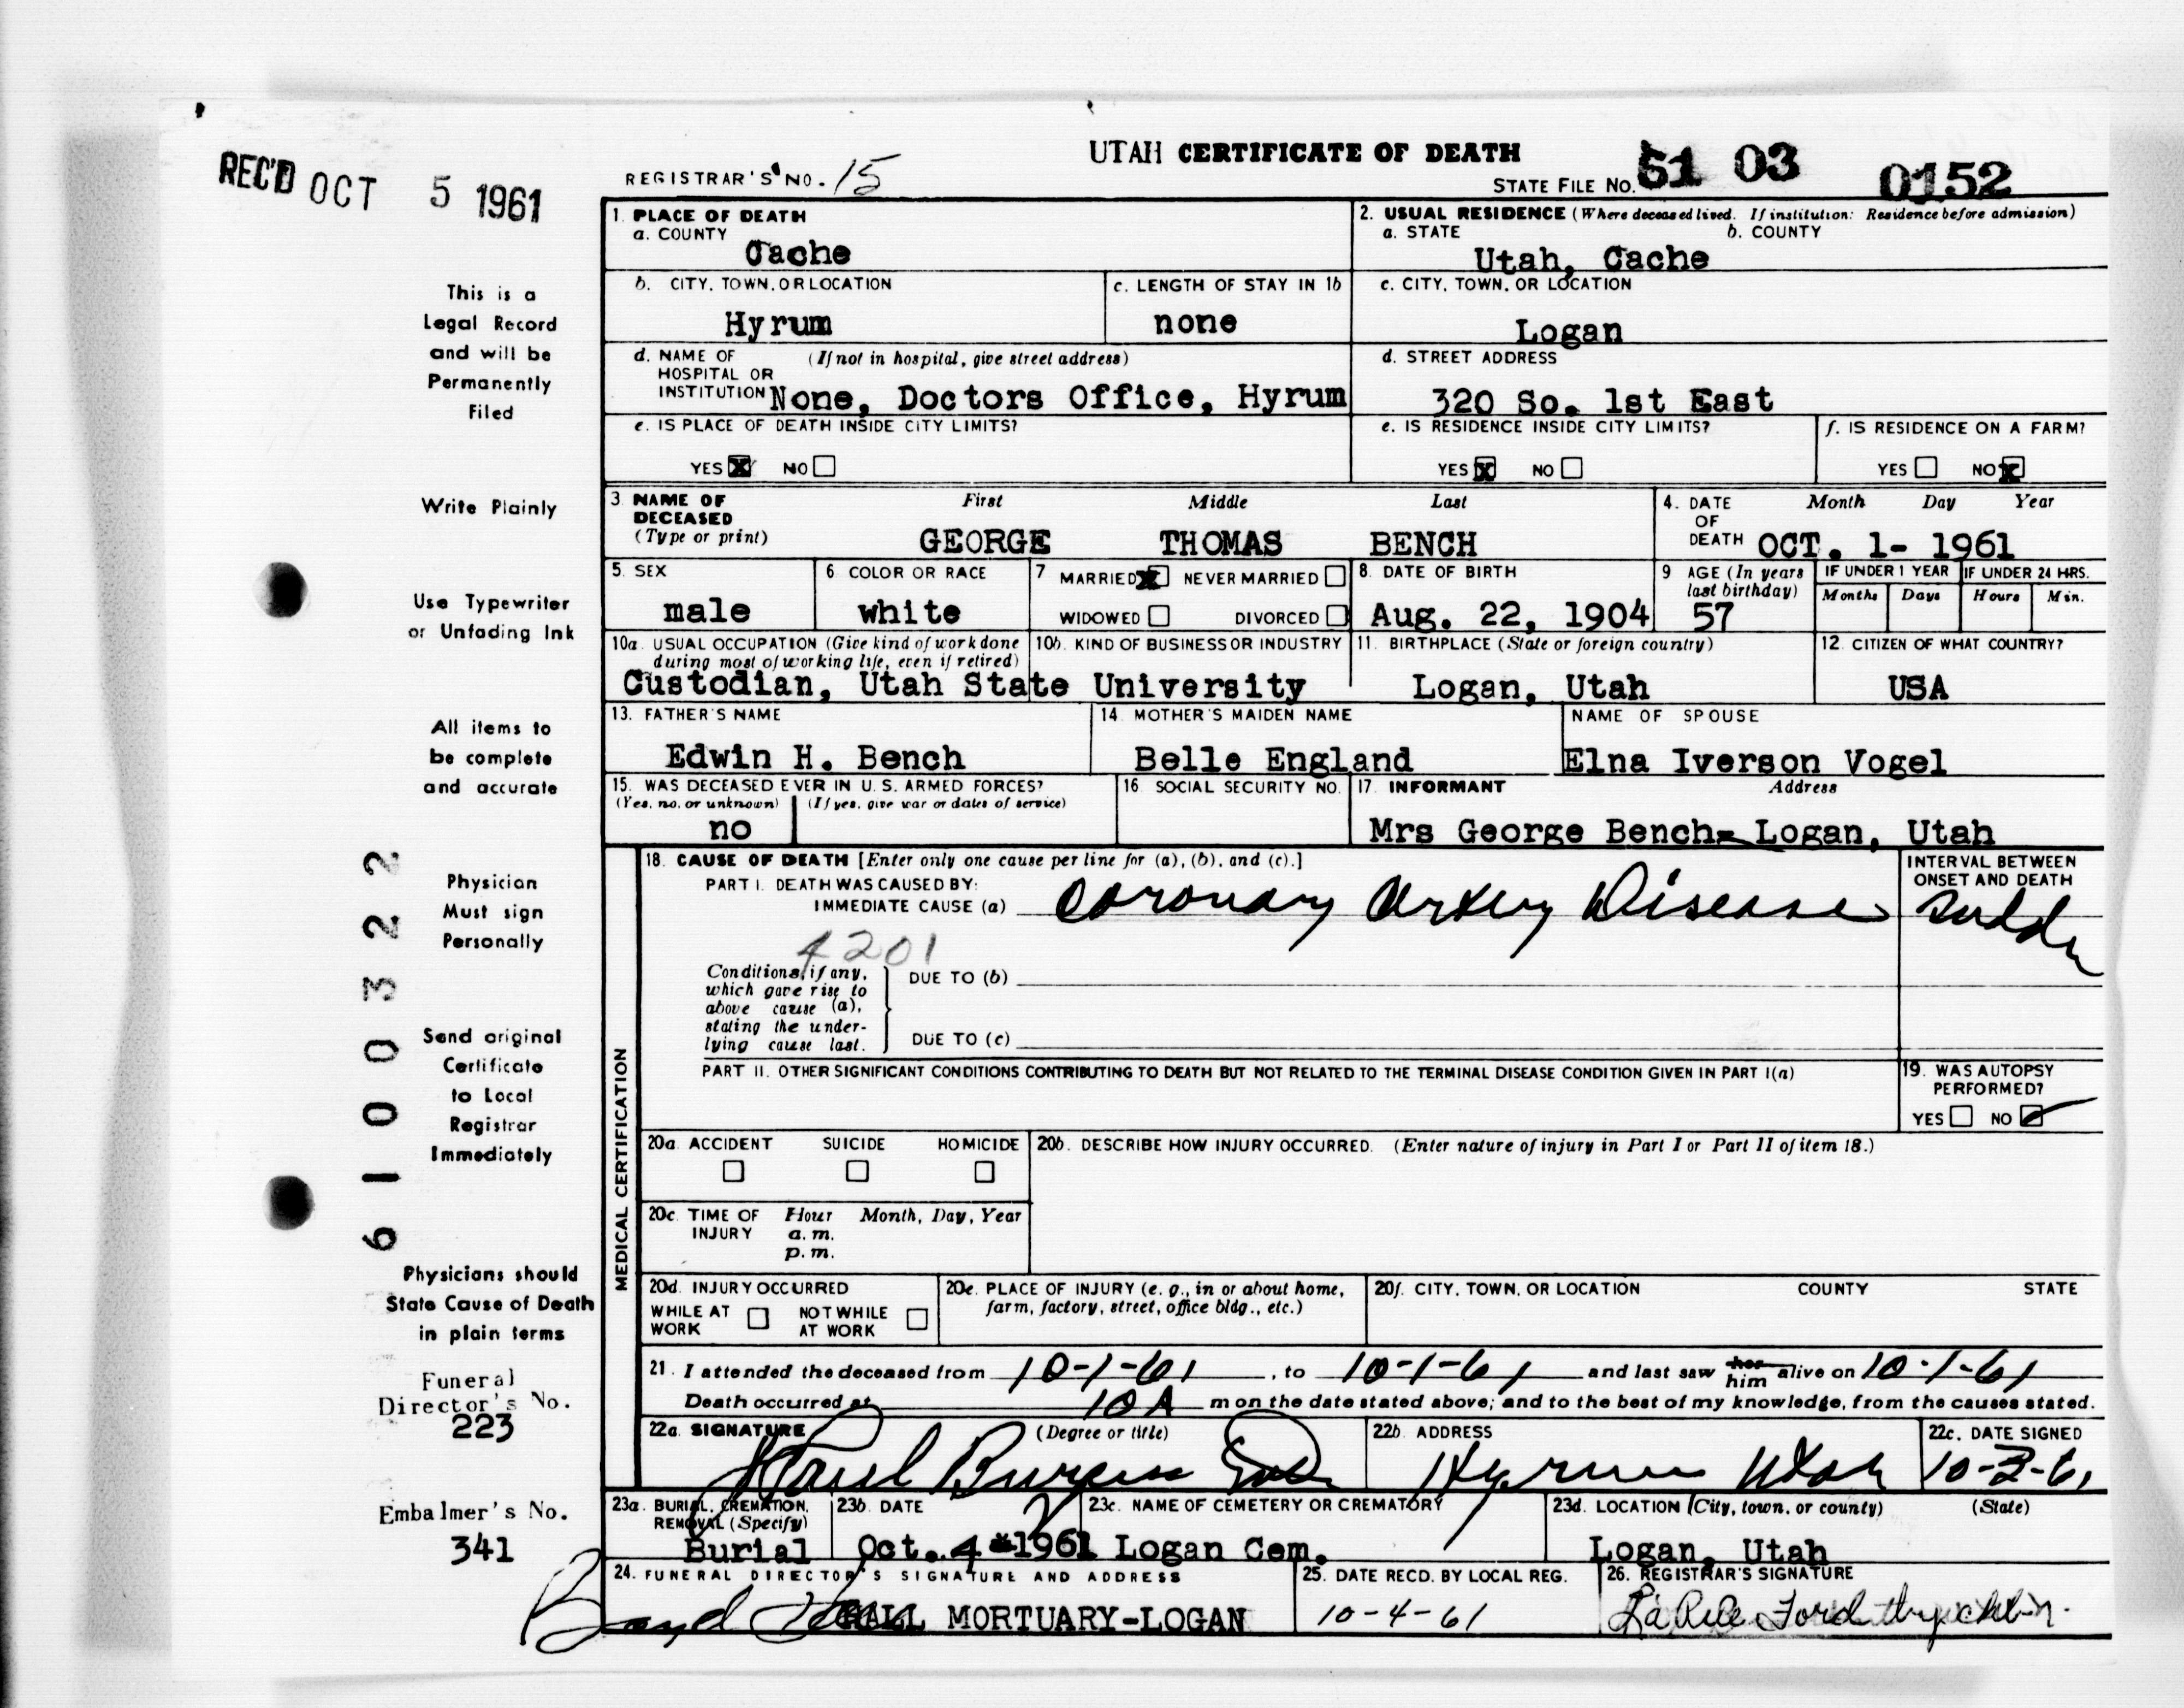 UTAH CERTIFICATE OF DEATH
REC'D OCT 5 1961
REGISTRAR'S NO. 15
STATE FILE No. 61 03 0152
1. PLACE OF DEATH
a. COUNTY
Cache
2. USUAL RESIDENCE (Where deceased lived. If institution: Residence before admission)
a. STATE b. COUNTY
Utah, Cache
b. CITY, TOWN, OR LOCATION
Hyrum
c. LENGTH OF STAY IN 1b
none
c. CITY, TOWN, OR LOCATION
Logan
d. NAME OF (If not in hospital, give street address)
HOSPITAL OR
INSTITUTION None, Doctors Office, Hyrum
d. STREET ADDRESS
320 So. 1st East
e. IS PLACE OF DEATH INSIDE CITY LIMITS?
YES X NO
e. IS RESIDENCE INSIDE CITY LIMITS?
YES X NO
f. IS RESIDENCE ON A FARM?
YES NO X
3. NAME OF DECEASED (Type or print)
First Middle Last
GEORGE THOMAS BENCH
4. DATE OF DEATH
Month Day Year
OCT. 1- 1961
5. SEX
male
6. COLOR OR RACE
white
7. MARRIED X NEVER MARRIED
WIDOWED DIVORCED
8. DATE OF BIRTH
Aug. 22, 1904
9. AGE (In years last birthday)
57
IF UNDER 1 YEAR
Months Days
IF UNDER 24 HRS.
Hours Min.
10a. USUAL OCCUPATION (Give kind of work done
during most of working life, even if retired)
10b. KIND OF BUSINESS OR INDUSTRY
Custodian, Utah State University
11. BIRTHPLACE (State or foreign country)
Logan, Utah
12. CITIZEN OF WHAT COUNTRY?
USA
13. FATHER'S NAME
Edwin H. Bench
14. MOTHER'S MAIDEN NAME
Belle England
NAME OF SPOUSE
Elna Iverson Vogel
15. WAS DECEASED EVER IN U.S. ARMED FORCES?
(Yes, no, or unknown) (If yes, give war or dates of service)
no
16. SOCIAL SECURITY NO.
17. INFORMANT Address
Mrs George Bench- Logan, Utah
MEDICAL CERTIFICATION
18. CAUSE OF DEATH [Enter only one cause per line for (a), (b), and (c).]
PART I. DEATH WAS CAUSED BY:
IMMEDIATE CAUSE (a) Coronary Artery Disease
INTERVAL BETWEEN
ONSET AND DEATH
4201
Conditions, if any,
which gave rise to
above cause (a),
stating the under-
lying cause last.
DUE TO (b)
DUE TO (c)
PART II. OTHER SIGNIFICANT CONDITIONS CONTRIBUTING TO DEATH BUT NOT RELATED TO THE TERMINAL DISEASE CONDITION GIVEN IN PART I(a)
19. WAS AUTOPSY
PERFORMED?
YES NO
20a. ACCIDENT SUICIDE HOMICIDE
20b. DESCRIBE HOW INJURY OCCURRED. (Enter nature of injury in Part I or Part II of item 18.)
20c. TIME OF INJURY
Hour Month, Day, Year
a. m.
p. m.
20d. INJURY OCCURRED
WHILE AT WORK NOT WHILE AT WORK
20e. PLACE OF INJURY (e. g., in or about home,
farm, factory, street, office bldg., etc.)
20f. CITY, TOWN, OR LOCATION COUNTY STATE
21. I attended the deceased from 10-1-61, to 10-1-61 and last saw her him alive on 10-1-61
Death occurred at 10 A m on the date stated above; and to the best of my knowledge, from the causes stated.
22a. SIGNATURE (Degree or title)
22b. ADDRESS
Hyrum Utah
22c. DATE SIGNED
10-3-61
23a. BURIAL, CREMATION,
REMOVAL (Specify)
Burial
23b. DATE
Oct. 4 1961
23c. NAME OF CEMETERY OR CREMATORY
Logan Cem.
23d. LOCATION (City, town, or county) (State)
Logan, Utah
24. FUNERAL DIRECTOR'S SIGNATURE AND ADDRESS
HALL MORTUARY-LOGAN
25. DATE RECD. BY LOCAL REG.
10-4-61
26. REGISTRAR'S SIGNATURE
This is a
Legal Record
and will be
Permanently
Filed
Write Plainly
Use Typewriter
or Unfading Ink
All items to
be complete
and accurate
Physician
Must sign
Personally
Send original
Certificate
to Local
Registrar
Immediately
Physicians should
State Cause of Death
in plain terms
Funeral
Director's No.
223
Embalmer's No.
341
61100322